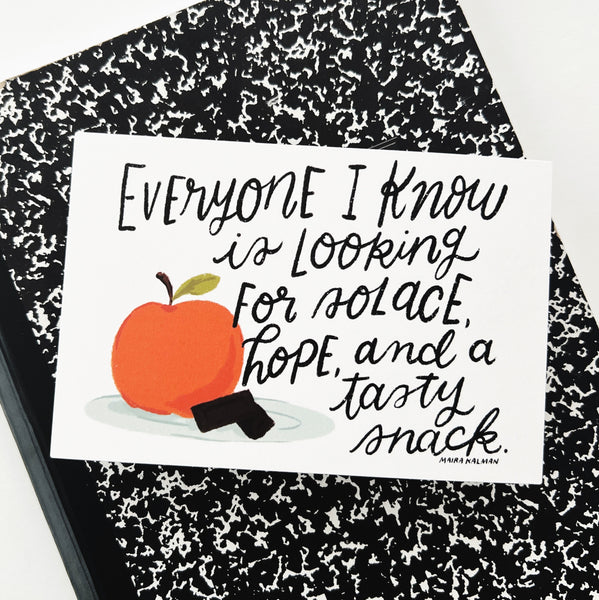 EVERYONE I KNOW
is LOOKING
FOR SOLACE,
HOPE, and a
tasty
snack.
MAIRA KALMAN